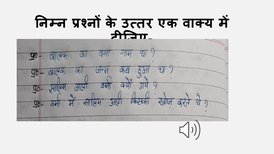 निम्न प्रश्नों के उत्तर एक वाक्य में
दीजिए-
प्र०- बालक का क्या नाम था ?
प्र०- बालक का जन्म कब हुआ था ?
प्र०- सालिम अली बर्मा क्यों गये ?
प्र०- बर्मा में सालिम अली किसकी खोज करते थे ?